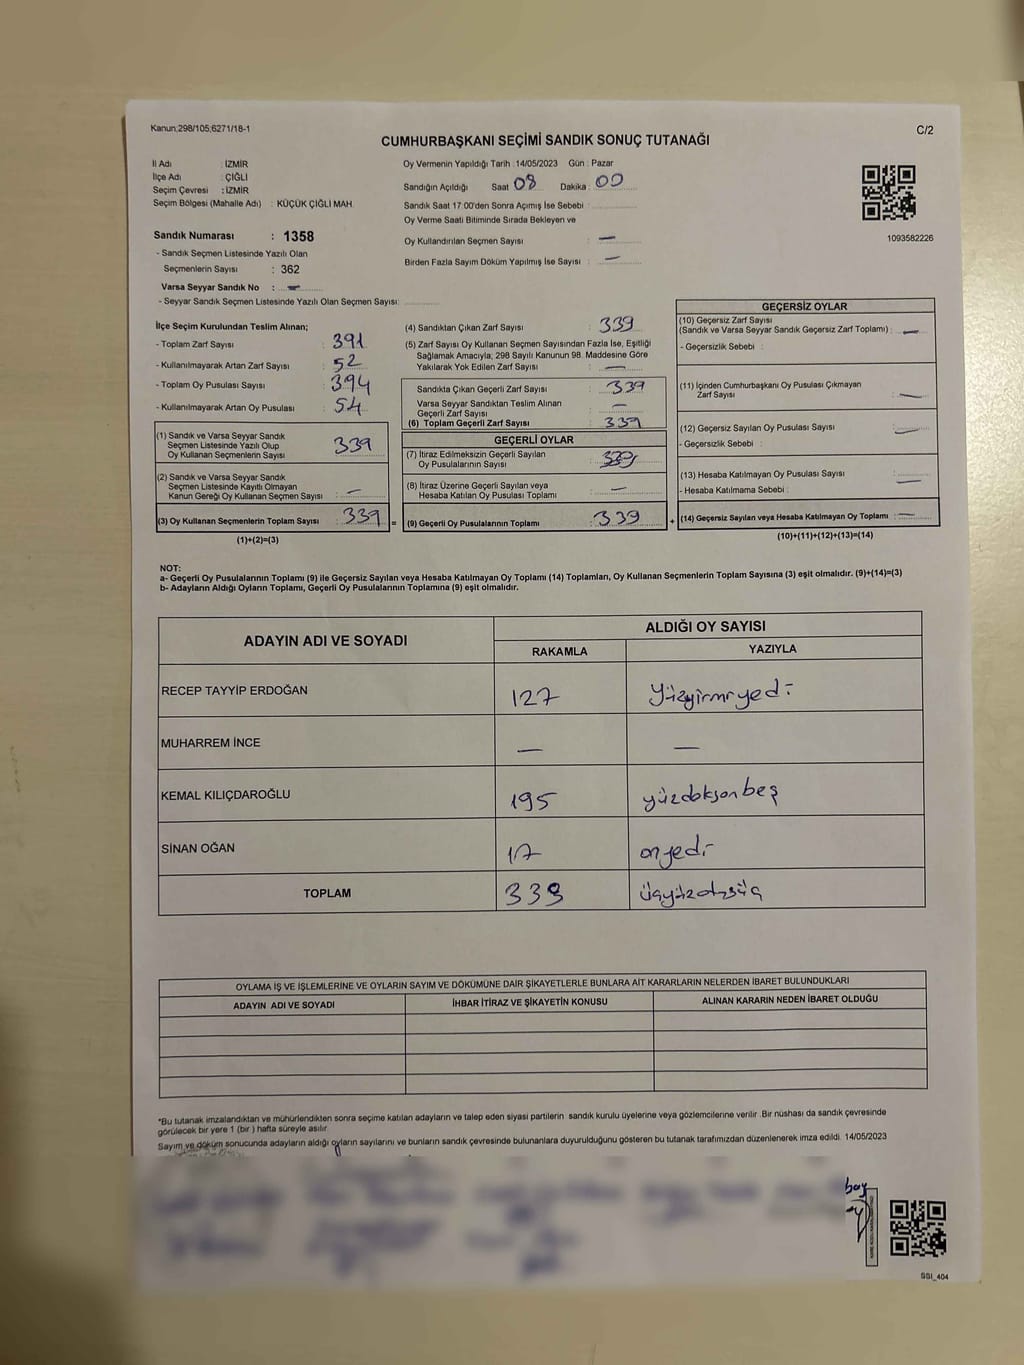 Kanun;298/105;6271/18-1
C/2
CUMHURBAŞKANI SEÇİMİ SANDIK SONUÇ TUTANAĞI
İl Adı : İZMİR
İlçe Adı : ÇİĞLİ
Seçim Çevresi : İZMİR
Seçim Bölgesi (Mahalle Adı) : KÜÇÜK ÇİĞLİ MAH.
Oy Vermenin Yapıldığı Tarih : 14/05/2023 Gün : Pazar
Sandığın Açıldığı Saat 08 Dakika : 00
Sandık Saat 17:00'den Sonra Açımış İse Sebebi :
Oy Verme Saati Bitiminde Sırada Bekleyen ve
Oy Kullandırılan Seçmen Sayısı : —
Birden Fazla Sayım Döküm Yapılmış İse Sayısı : —
1093582226
Sandık Numarası : 1358
- Sandık Seçmen Listesinde Yazılı Olan
Seçmenlerin Sayısı : 362
Varsa Seyyar Sandık No : —
- Seyyar Sandık Seçmen Listesinde Yazılı Olan Seçmen Sayısı:
İlçe Seçim Kurulundan Teslim Alınan;
- Toplam Zarf Sayısı : 391
- Kullanılmayarak Artan Zarf Sayısı : 52
- Toplam Oy Pusulası Sayısı : 394
- Kullanılmayarak Artan Oy Pusulası : 54
(1) Sandık ve Varsa Seyyar Sandık
Seçmen Listesinde Yazılı Olup
Oy Kullanan Seçmenlerin Sayısı : 339
(2) Sandık ve Varsa Seyyar Sandık
Seçmen Listesinde Kayıtlı Olmayan
Kanun Gereği Oy Kullanan Seçmen Sayısı : —
(3) Oy Kullanan Seçmenlerin Toplam Sayısı : 339 =
(1)+(2)=(3)
(4) Sandıktan Çıkan Zarf Sayısı : 339
(5) Zarf Sayısı Oy Kullanan Seçmen Sayısından Fazla İse, Eşitliği
Sağlamak Amacıyla; 298 Sayılı Kanunun 98. Maddesine Göre
Yakılarak Yok Edilen Zarf Sayısı : —
Sandıkta Çıkan Geçerli Zarf Sayısı : 339
Varsa Seyyar Sandıktan Teslim Alınan
Geçerli Zarf Sayısı : —
(6) Toplam Geçerli Zarf Sayısı : 339
GEÇERLİ OYLAR
(7) İtiraz Edilmeksizin Geçerli Sayılan
Oy Pusulalarının Sayısı : 339
(8) İtiraz Üzerine Geçerli Sayılan veya
Hesaba Katılan Oy Pusulası Toplamı : —
(9) Geçerli Oy Pusulalarının Toplamı : 339 +
GEÇERSİZ OYLAR
(10) Geçersiz Zarf Sayısı
(Sandık ve Varsa Seyyar Sandık Geçersiz Zarf Toplamı) : —
- Geçersizlik Sebebi :
(11) İçinden Cumhurbaşkanı Oy Pusulası Çıkmayan
Zarf Sayısı : —
(12) Geçersiz Sayılan Oy Pusulası Sayısı : —
- Geçersizlik Sebebi :
(13) Hesaba Katılmayan Oy Pusulası Sayısı : —
- Hesaba Katılmama Sebebi :
(14) Geçersiz Sayılan veya Hesaba Katılmayan Oy Toplamı : —
(10)+(11)+(12)+(13)=(14)
NOT:
a- Geçerli Oy Pusulalarının Toplamı (9) ile Geçersiz Sayılan veya Hesaba Katılmayan Oy Toplamı (14) Toplamları, Oy Kullanan Seçmenlerin Toplam Sayısına (3) eşit olmalıdır. (9)+(14)=(3)
b- Adayların Aldığı Oyların Toplamı, Geçerli Oy Pusulalarının Toplamına (9) eşit olmalıdır.
ADAYIN ADI VE SOYADI
ALDIĞI OY SAYISI
RAKAMLA YAZIYLA
RECEP TAYYİP ERDOĞAN 127 Yüzyirmiyedi
MUHARREM İNCE — —
KEMAL KILIÇDAROĞLU 195 yüzdoksanbeş
SİNAN OĞAN 17 onyedi
TOPLAM 339
OYLAMA İŞ VE İŞLEMLERİNE VE OYLARIN SAYIM VE DÖKÜMÜNE DAİR ŞİKAYETLERLE BUNLARA AİT KARARLARIN NELERDEN İBARET BULUNDUKLARI
ADAYIN ADI VE SOYADI İHBAR İTİRAZ VE ŞİKAYETİN KONUSU ALINAN KARARIN NEDEN İBARET OLDUĞU
*Bu tutanak imzalandıktan ve mühürlendikten sonra seçime katılan adayların ve talep eden siyasi partilerin sandık kurulu üyelerine veya gözlemcilerine verilir .Bir nüshası da sandık çevresinde
görülecek bir yere 1 (bir ) hafta süreyle asılır.
Sayım ve döküm sonucunda adayların aldığı oyların sayılarını ve bunların sandık çevresinde bulunanlara duyurulduğunu gösteren bu tutanak tarafımızdan düzenlenerek imza edildi. 14/05/2023
SSI_404